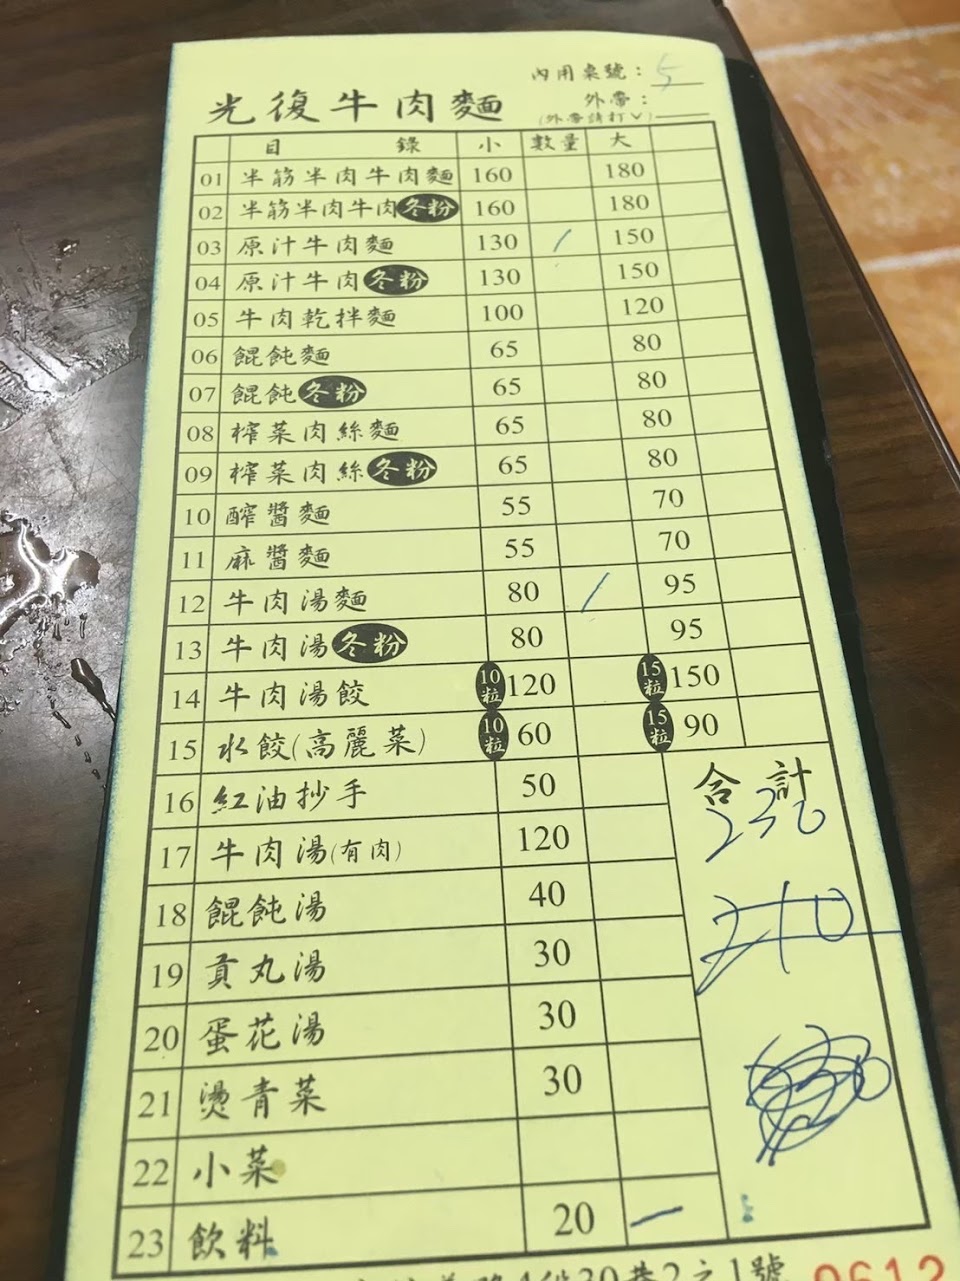 內用桌號：5
光復牛肉麵
外帶：
(外帶請打V)
目錄 小 數量 大
01 半筋半肉牛肉麵 160 180
02 半筋半肉牛肉冬粉 160 180
03 原汁牛肉麵 130 / 150
04 原汁牛肉冬粉 130 150
05 牛肉乾拌麵 100 120
06 餛飩麵 65 80
07 餛飩冬粉 65 80
08 榨菜肉絲麵 65 80
09 榨菜肉絲冬粉 65 80
10 醡醬麵 55 70
11 麻醬麵 55 70
12 牛肉湯麵 80 / 95
13 牛肉湯冬粉 80 95
14 牛肉湯餃 10粒 120 15粒 150
15 水餃(高麗菜) 10粒 60 15粒 90
16 紅油抄手 50
合計
17 牛肉湯(有肉) 120
230
18 餛飩湯 40
210
19 貢丸湯 30
20 蛋花湯 30
21 燙青菜 30
22 小菜
23 飲料 20 一
4段30巷2之1號 0612